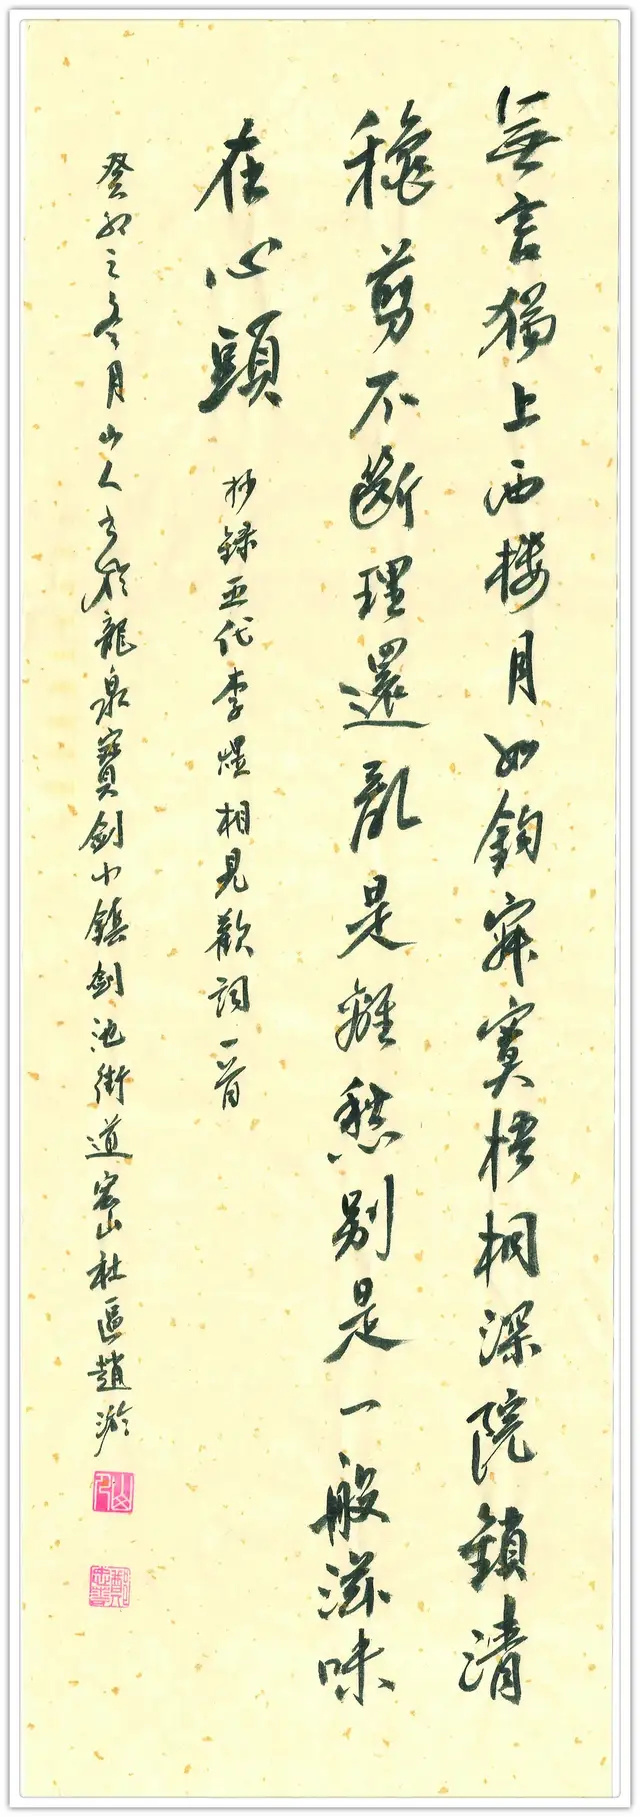 無言獨上西樓月如鈎寂寞梧桐深院鎖清
穐剪不斷理還亂是離愁别是一般滋味
在心頭
抄録五代李煜相見歡詞一首
癸卯之冬月山人書於龍泉寶劍小鎮劍池街道宏山社區趙
山人